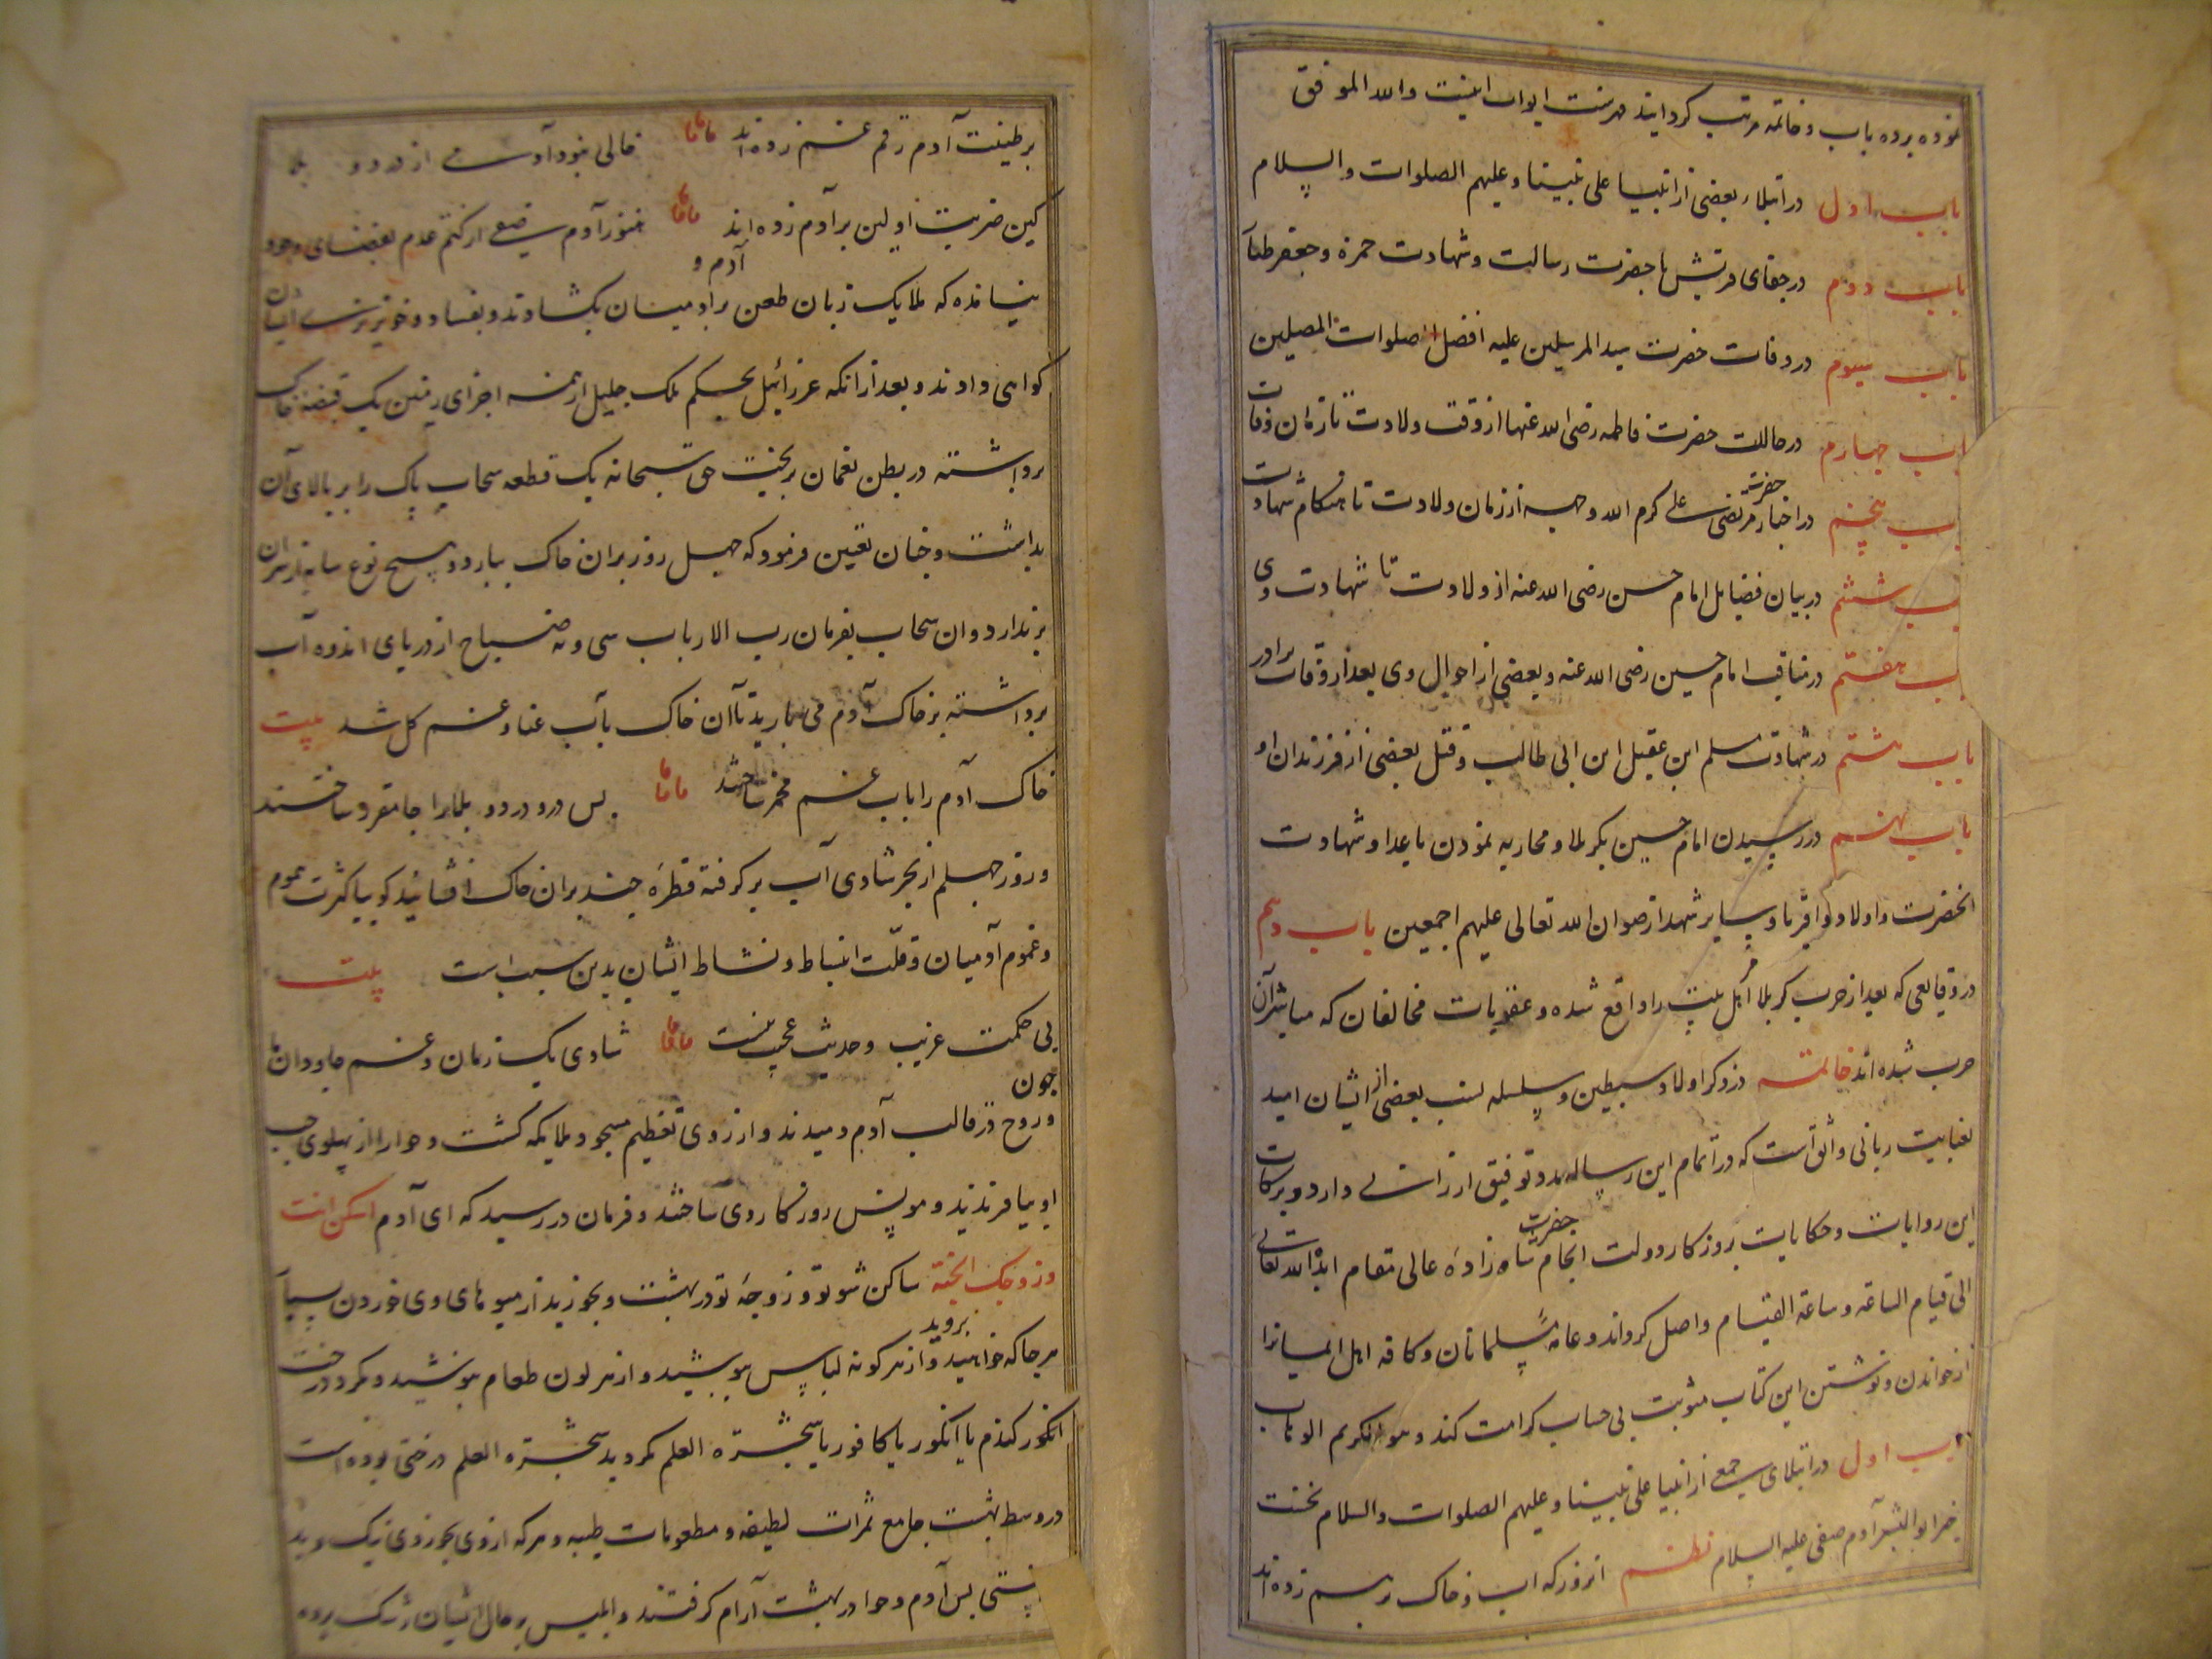 نموده بر ده باب و خاتمه مرتب کردانید فهرست ابواب اینست والله الموفق
باب اول در ابتلاء بعضی از انبیا علی نبینا و علیهم الصلوات والسلام
باب دوم در جفای قریش با حضرت رسالت و شهادت حمزه و جعفر طیار
باب سیوم در وفات حضرت سید المرسلین علیه افضل صلوات المصلین
باب چهارم در حالات حضرت فاطمه رضی الله عنها از وقت ولادت تا زمان وفات
باب پنجم در اخبار حضرت مرتضی علی کرم الله وجهه از زمان ولادت تا هنکام شهادت
باب ششم در بیان فضایل امام حسن رضی الله عنه از ولادت تا شهادت وی
باب هفتم در مناقب امام حسین رضی الله عنه و بعضی از احوال وی بعد از وفات برادر
باب هشتم در شهادت مسلم ابن عقیل ابن ابی طالب و قتل بعضی از فرزندان او
باب نهم در رسیدن امام حسین بکربلا و محاربه نمودن با عدا و شهادت
انحضرت و اولاد و اقربا و سایر شهدا رضوان الله تعالی علیهم اجمعین باب دهم
در وقایعی که بعد از حرب کربلا مر اهل بیت را واقع شده و عقوبات مخالفان که مباشر آن
حرب شده اند خاتمه در ذکر اولاد سبطین و سلسله نسب بعضی از ایشان امید
بعنایت ربانی واثق است که در اتمام این رساله مدد توفیق ارزانی دارد و برکات
این روایات و حکایات بروزکار دولت انجام حضرت شاه زاده عالی مقام ابده الله تعالی
الی قیام الساعه و ساعة القیام واصل کرداند و عامه مسلمانان و کافه اهل ایمانرا
از خواندن و نوشتن این کتاب مثوبت بی حساب کرامت کند و هو الکریم الوهاب
باب اول در ابتلای جمعی از انبیا علی نبینا و علیهم الصلوات والسلام نخست
ابوالبشر آدم صفی علیه السلام نظم انروز که اب و خاک بر هم زده اند
بر طینت آدم رقم غم زده اند خالی نبود آدمی از درد و بلا
کین ضربت اولین بر آدم زده اند هنوز آدم صفی از کتم عدم بفضای وجود
نیامده که ملایک زبان طعن بر آدم و آدمیان بکشادند و بفساد و خونریزی ایشان
کواهی دادند و بعد از انکه عزرائیل بحکم ملک جلیل از همه اجزای زمین یک قبضه خاک
برداشته در بطن نعمان بریخت حق سبحانه یک قطعه سحاب پاک را بر بالای آن
بداشت و چنان تعیین فرمود که چهل روز بران خاک ببارد و هیچ نوع سایه از سران
برندارد و ان سحاب بفرمان رب الارباب سی و نه صباح از دریای اندوه آب
برداشته بر خاک آدم می بارید تا آن خاک بآب عنا و غم کل شد بیت
خاک آدم را باب غم مخمر ساختند پس درو درد و بلا را جا مقرر ساختند
و روز چهلم از بحر شادی آب بر کرفته قطرۀ چند بران خاک افشانید کوییا کثرت هموم
و غموم آدمیان و قلت انبساط و نشاط ایشان بدین سبب است بیت
بی حکمت غریب و حدیث عجیب نیست شادی یک زمان و غم جاودان ما
چون
و روح در قالب آدم دمیدند و از روی تعظیم مسجود ملایکه کشت و حوا را از پهلوی چپ
او بیافریدند و مونس روزکار وی ساختند و فرمان در رسید که ای آدم اسکن انت
و زوجک الجنة ساکن شو تو و زوجۀ تو در بهشت و بخورید از میوهای وی خوردن بسیار
هر جا که خواهید بروید و از هر کونه لباس بپوشید و از هر لون طعام بنوشید و کرد درخت
انکور کندم یا انکور یا کافور یا شجره العلم مکردید شجره العلم درختی بوده است
در وسط بهشت جامع ثمرات لطیفه و مطعومات طیبه و هر که از وی بخوردی نیک و بد
بدانستی پس آدم و حوا در بهشت آرام کرفتند و ابلیس بر حال ایشان رشک برده